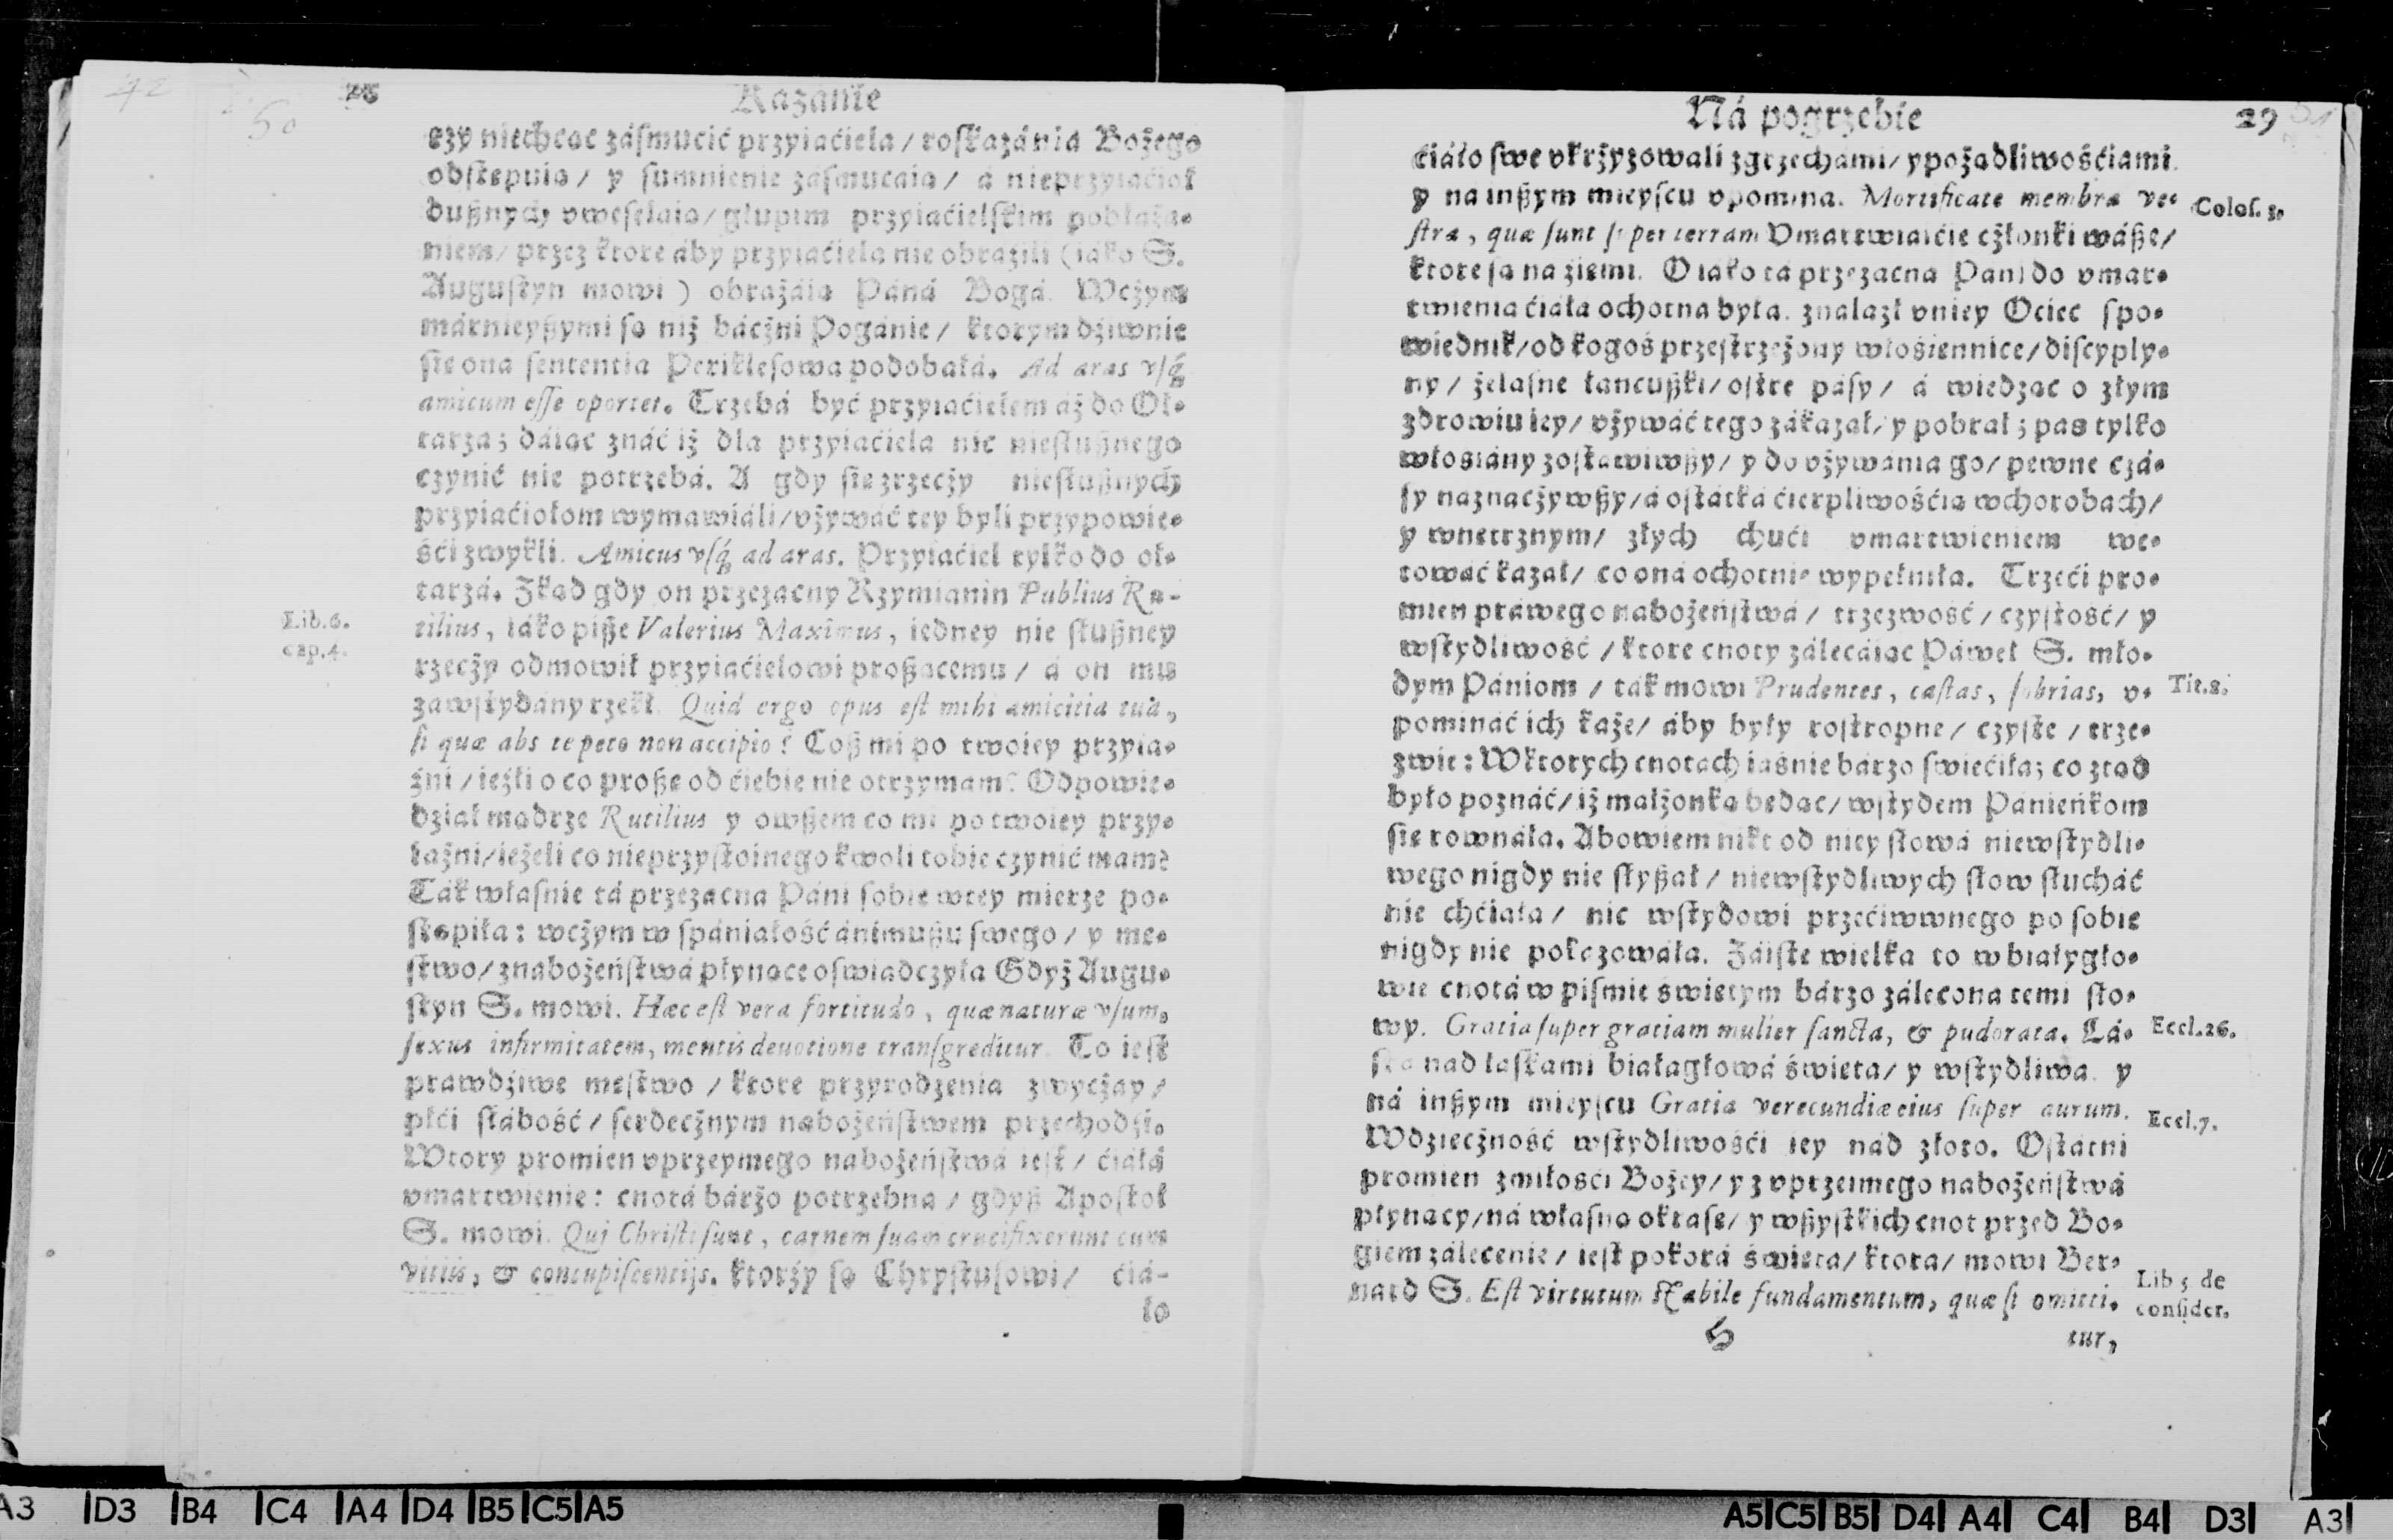 28 Kazanie
czy niechcąc zásmućić przyiaćiela / roskazánia Bożego
odstępuią / y sumnienie zásmucaią / á nieprzyiaćioł
dusznych vweselaią / głupim przyiaćielskim pobłaża-
niem / przez ktore áby przyiaćiela nie obraźili (iáko S.
Augustyn mowi ) obrażáią Páná Bogá. Wczym
márnieyszymi są niż báczni Pogánie / ktorym dźiwnie
się ona sententia Periklesowa podobałá. Ad aras vsq́;
amicum esse oportet. Trzebá być przyiaćielem áż do Oł-
tarza; dáiąc znáć iż dla przyiaćiela nic niesłusznego
czynić nie potrzebá. A gdy się z rzeczy niesłusznych
przyiaćiołom wymawiáli / vżywáć tey byli przypowie-
śći zwykli. Amicus vsq́; ad aras. Przyiaćiel tylko do oł-
tarzá. Zkąd gdy on przezacny Rzymianin Publius Ru-
Lib.6.
cap.4.
tilius, iáko pisze Valerius Maximus, iedney nie słuszney
rzeczy odmowił przyiaćielowi proszącemu / á on mu
zawstydány rzekł. Quid ergo opus est mihi amicitia tua,
si quæ abs te peto non accipio? Cosz mi po twoiey przyia-
źni / ieźli o co proszę od ćiebie nie otrzymam? Odpowie-
dział mądrze Rutilius y owszem co mi po twoiey przy-
iaźni / ieżeli co nieprzystoinego kwoli tobie czynić mam?
Ták własnie tá przezacna Páni sobie wtey mierze po-
stąpiła: wczym wspániałość ánimuszu swego / y mę-
stwo / z nabożeństwá płynące oświadczyła Gdyż Augu-
styn S. mowi. Hæc est vera fortitudo, quæ naturæ vsum,
sexus infirmitatem, mentis deuotione transgreditur. To iest
prawdźiwe męstwo / ktore przyrodzenia zwyczay /
płći słábość / serdecznym nabożeństwem przechodźi.
Wtory promien vprzeymego nabożeństwá iest / ćiáłá
vmartwienie: cnotá bárzo potrzebna / gdysz Apostoł
S. mowi. Qui Christi sunt, carnem suam crucifixerunt cum
vitiis, & concupiscentijs. ktorzy są Chrystusowi / ćiá-
ło
Ná pogrzebie 29
ćiáło swe vkrzyzowali z grzechámi / y pożądliwośćiami.
y na inszym mieyscu vpomina. Mortificate membra ve-
Colos. 3.
stra, quæ sunt super terram Vmartwiaićie członki wásze /
ktore są na źiemi. O iáko tá przezacna Pani do vmar-
twienia ćiáła ochotna była. znalazł v niey Oćiec spo-
wiednik / od kogoś przestrzeżony włośiennice / discyply-
ny / żelasne łancuszki / ostre pásy / á wiedząc o złym
zdrowiu iey / vżywáć tego zákazał / y pobrał; pas tylko
włosiány zostawiwszy / y do vżywánia go / pewne czá-
sy naznaczywszy / á ostátká ćierpliwośćią w chorobach /
y wnetrznym / złych chući vmartwieniem we-
tować kazał / co oná ochotnie wypełniła. Trzeći pro-
mien práwego nabożeństwá / trzezwość / czystość / y
wstydliwość / ktore cnoty zálecáiąc Páweł S. mło-
dym Pániom / ták mowi Prudentes, castas, sobrias, v-
Tit.2.
pomináć ich każe / áby były rostropne / czyste / trze-
zwie: W ktorych cnotách iasnie bárzo swiećiła; co ztąd
było poznáć / iż małżonką będąc / wstydem Pánieńkom
się rownáła. Abowiem nikt od niey słowá niewstydli-
wego nigdy nie słyszał / niewstydliwych słow słucháć
nie chćiała / nic wstydowi przećiwnego po sobie
nigdy nie pokazowáła. Záiste wielka to w białygło-
wie cnotá w piśmie świętym bárzo zálecona temi sło-
wy. Gratia super gratiam mulier sancta, & pudorata. Łá-
Eccl.26.
ska nad łaskami białagłowá święta / y wstydliwa. y
ná inszym mieyscu Gratia verecundiæ eius super aurum.
Eccl.7.
Wdzieczność wstydliwośći iey nád złoto. Ostátni
promien z miłośći Bożey / y z vprzeimego nabożeństwá
płynący / ná własną okrasę / y wszystkich cnot przed Bo-
giem zálecenie / iest pokorá święta / ktora / mowi Ber-
nard S. Est virtutum stabile fundamentum, quæ si omitti-
Lib 5 de
consider.
tur,